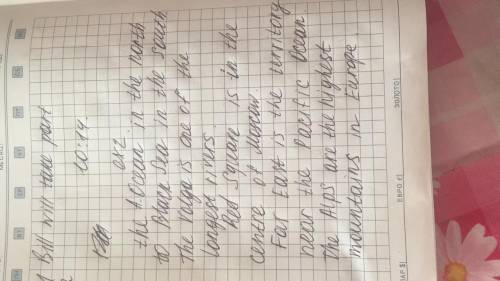 Bill will take part
10:14.
ex2
the A. Ocean in the north
to Black Sea in the south
The Volga is one of the
longest rivers
Red Square is in the
centre of Moscow.
Far East is the territory
near the Pacific Ocean
The Alps are the highest
mountains in Europe
ЗОЛОТО
ЕВРО